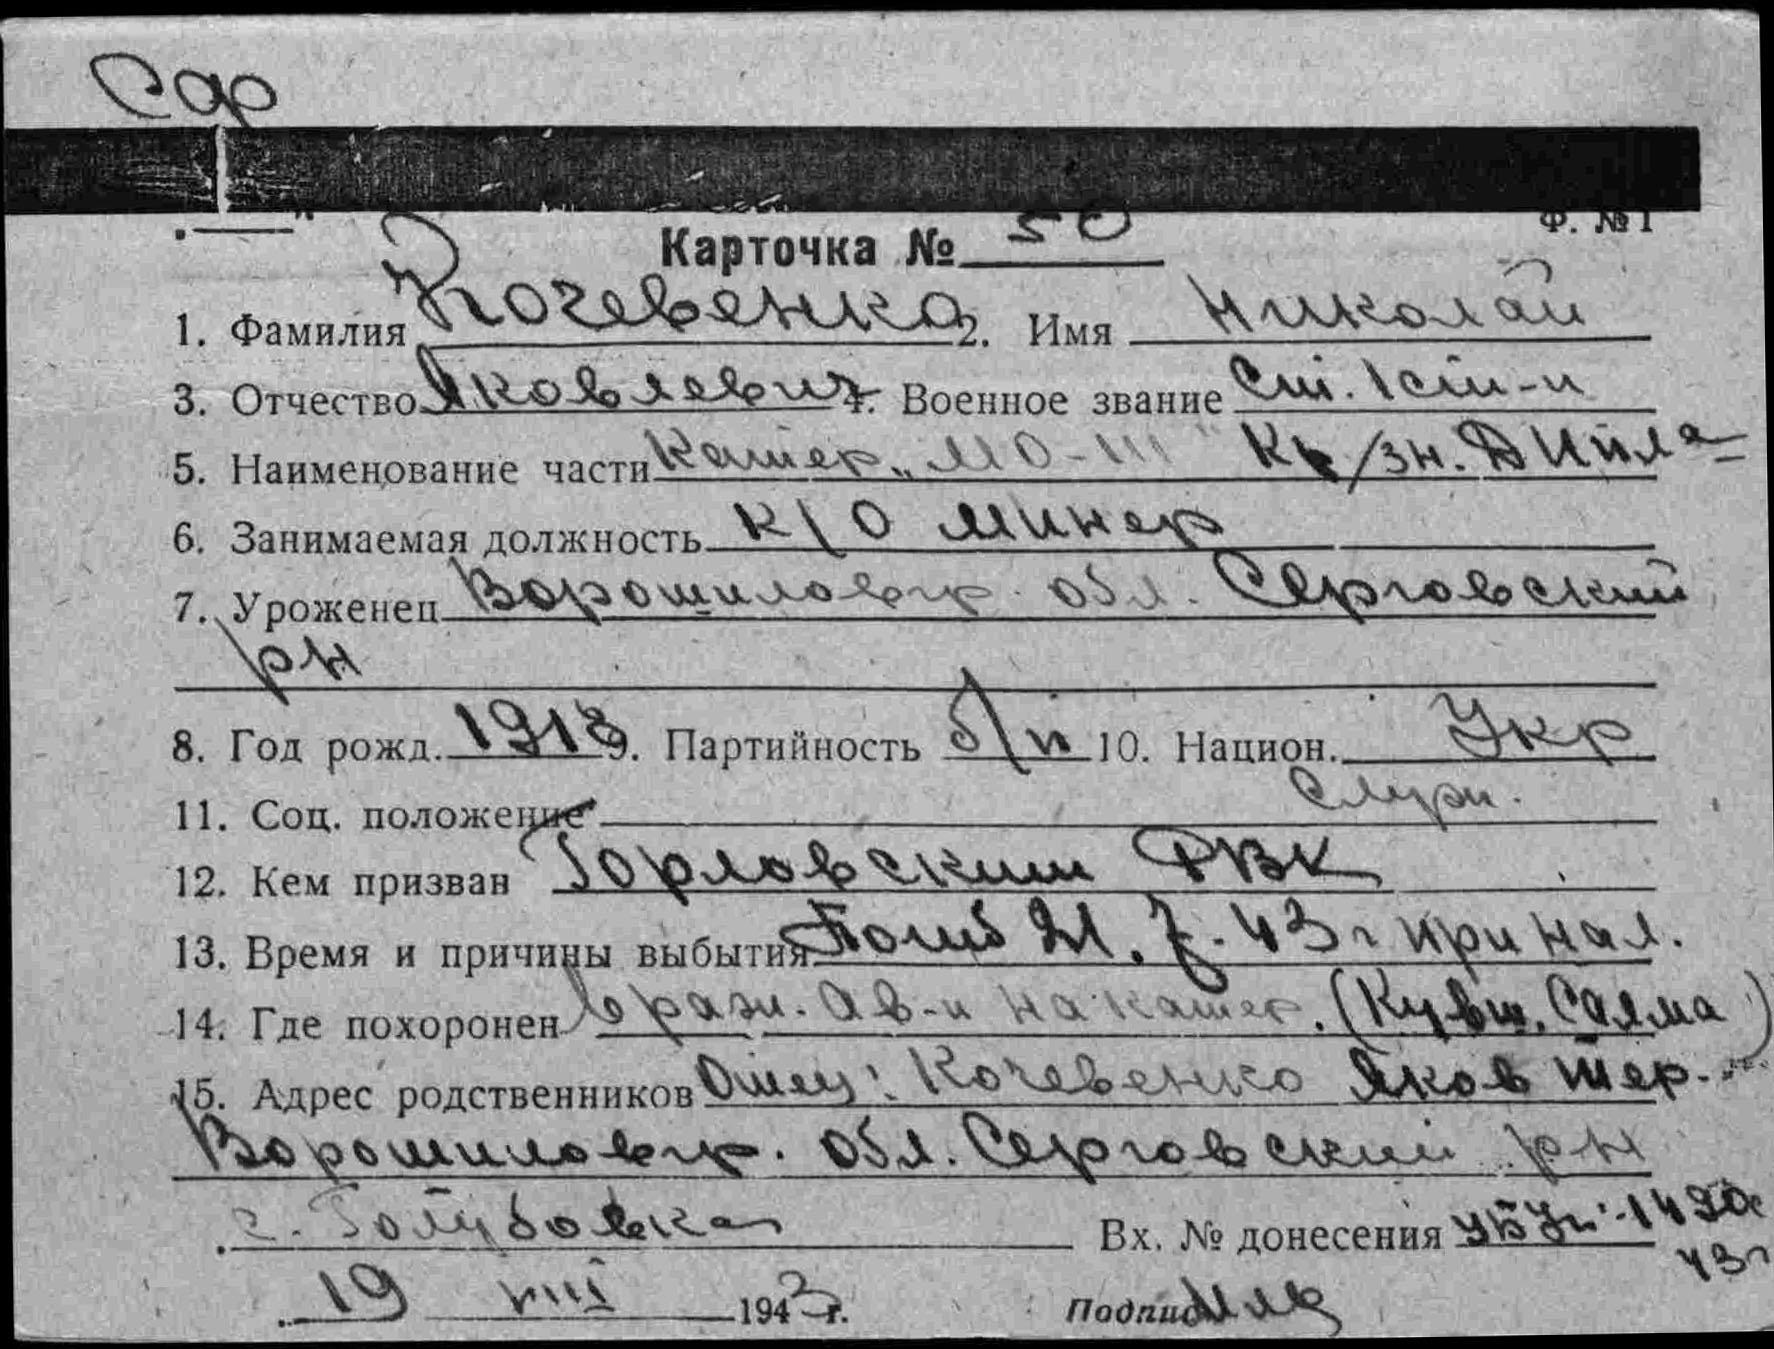 Сар
Ф. № 1
Карточка № 50
1. Фамилия Кочевенко 2. Имя Николай
3. Отчество Яковлевич 4. Военное звание Ст. 1 ст-и
5. Наименование части Катер „МО-111"
6. Занимаемая должность к/о минер
7. Уроженец Ворошиловгр. обл. Серговский
р-н
8. Год рожд. 1918 9. Партийность б/п 10. Национ. Укр
11. Соц. положение Служ.
12. Кем призван Горловским РВК
13. Время и причины выбытия Погиб 21.7.43 г при нал.
14. Где похоронен враж. ав-и на катер. (Кувш. Салма)
15. Адрес родственников Отец: Кочевенко Яков Тер.
Ворошиловгр. обл. Серговский р-н
с. Голубовка Вх. № донесения
43 г
19 VIII 1943 г. Подпись